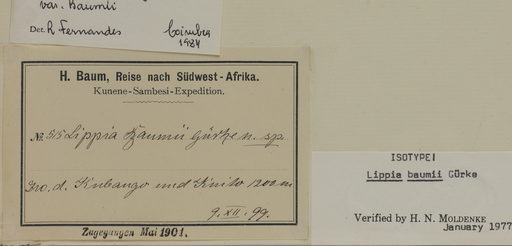 var. Baumii
Det. R Fernandes Coimbra
1984
H. Baum, Reise nach Südwest-Afrika.
Kunene-Sambesi-Expedition.
№ 515 Lippia Baumii Gürke n. sp.
d. Kubango und Kuito 1200 m
9. XII. 99.
Zugegangen Mai 1901.
ISOTYPE!
Lippia baumii Gürke
Verified by H. N. MOLDENKE
January 1977